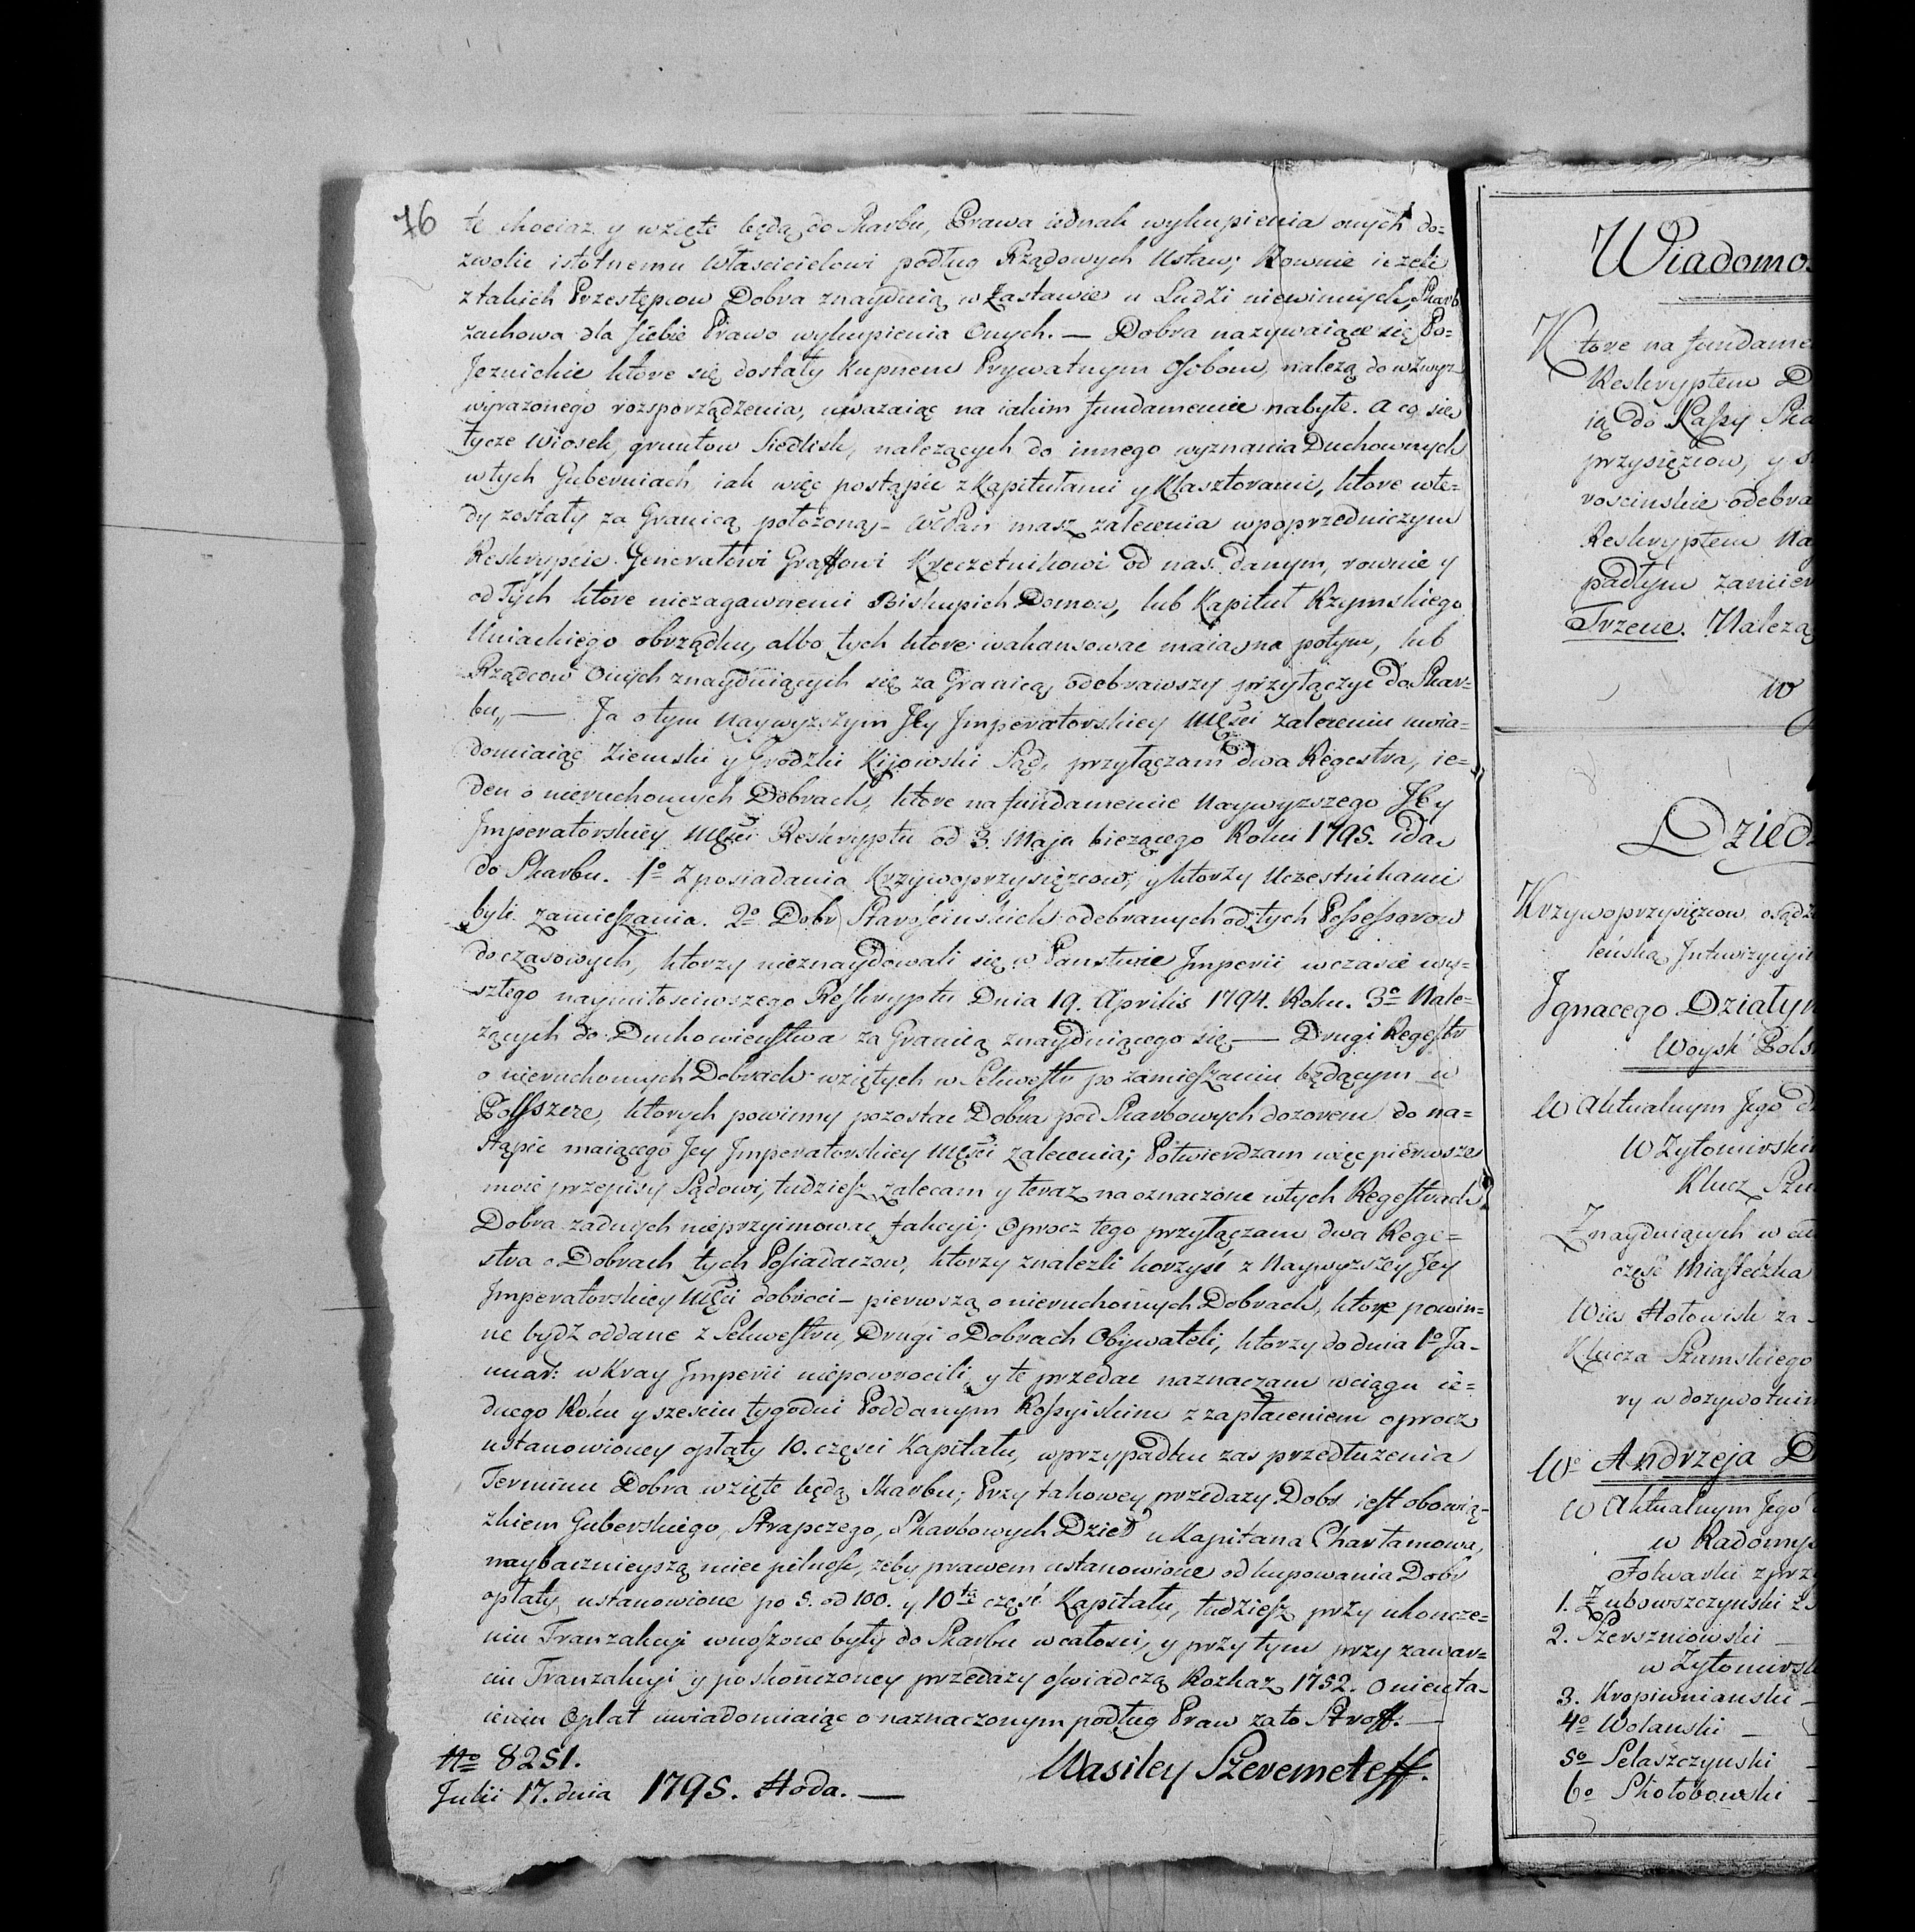 76
te chociaz y wzięte będą do Skarbu, Prawa iednak wykupienia onych do=
zwolić istotnemu Własćicielowi podług Rządowych Ustaw; Rownie ieżeli
z takich Przestępcow Dobra znayduią w Zastawie u Ludzi niewinnych, Skarb
zachowa dla siebie Prawo wykupienia Onych. — Dobra nazywaiące się Po=
Jeznickie ktore się dostały Kupnem Prywatnym Osobom, należą do wzwyz
wyrazonego rozsporządzenia, uwazaiąc na iakim fundamencie nabyte. A co się
tycze Wiosek, gruntow Siedlisk, nalezących do innego wyznania Duchownych
w tych Guberniach, iak więc postąpić z Kapitułami y Klasztorami, ktore wte=
dy zostały za Granicą położoną – WćPan masz zalecenia w poprzedniczym
Reskrypcie Generałowi Graffowi Kreczetnikowi od nas danym, rownie y
od Tych ktore niezagarnieni Biskupich Domow, lub Kapituł Rzymskiego
Uniackiego obrządku, albo tych ktore wakansować maią na potym, lub
Rządcow Onych znayduiących się za Granicą, odebrawszy przyłączyć do Skar=
bu„ — Ja o tym Naywyższym Jey Imperatorskiey Mści zaleceniu uwia=
domiaiąc Ziemski y Grodzki Kijowski Sąd, przyłączam dwa Regestra, ie=
den o nieruchomych Dobrach, ktore na fundamencie Naywyzszego Jey
Imperatorskiey Mści Reskryptu od 3. Maja biezącego Roku 1795. idą
do Skarbu. 1º Z posiadania Krzywoprzysięzcow, y ktorzy Uczestnikami
byli zamieszania. 2º Dobr Staroscinskich odebranych od tych Possessorow
doczasowych, ktorzy nieznaydowali się w Panstwie Imperii w czasie wy=
szłego naymiłosciwszego Reskryptu Dnia 19. Aprilis 1794. Roku. 3º Nale=
zących do Duchowienstwa za Granicą znayduiącego się — Drugi Regestr
o nieruchomych Dobrach wziętych w Sekwestr po zamieszaniu będącym w
Polszcze, ktorych powinny pozostać Dobra pod Skarbowych dozorem do na=
stąpić maiącego Jey Imperatorskiey Mści zalecenia; Potwierdzam więc pierwsze
moie przepisy Sądowi, tudziesz zalecam y teraz na oznaczone w tych Regestrach
Dobra zadnych nieprzyimować Jakcyi; Oprocz tego przyłączam dwa Rege=
stra o Dobrach tych Posiadaczow, ktorzy znalezli korzyść z Naywyzszey Jey
Imperatorskiey Mści dobroci – pierwszą o nieruchomych Dobrach, ktore powin=
ne bydź oddane z Sekwestru, Drugi o Dobrach Obywateli, ktorzy do dnia 1º Ja=
nuar: w Kray Imperii niepowrocili, y te przedać naznaczam w ciągu ie=
dnego Roku y szesciu tygodni Poddanym Rossyiskim z zapłaceniem oprocz
ustanowioney opłaty 10. częsci Kapitału, w przypadku zas przedłuzenia
Terminu Dobra wzięte będą Skarbu; Przy takowey przedazy Dobr iest obowią=
zkiem Guberskiego, Strapczego, Skarbowych Dzieł u Kapitana Chartamowa,
naybacznieyszą miec pilność, zeby prawem ustanowione od kupowania Dobr
opłaty ustanowione po 5. od 100. y 10tą część Kapitału, tudziesz przy ukończe=
niu Tranzakcyi wnoszone były do Skarbu w całosci, y przy tym przy zawar=
ciu Tranzakcyi y po skończoney przedazy oświadczą Rozkaz 1752. O nieuta=
ieniu Opłat uwiadomiaiąc o naznaczonym podług Praw za to Stroff. —
No 8251.
Wasiley Szeremeteff.
Julii 17. dnia 1795. Hoda. —
Wiadomos
Ktore na fundame
Reskryptem D
ią do Kassy Ska
przysięzcow, y s
roscinskie odebra
Reskryptem Na
padłym zamier
Trzecie. Nalezą
w
Dzied
Krzywoprzysięzcow osądz
leńską Inkwizycyi
Ignacego Działyn
Woysk Pols
W Aktualnym Jego d
W Zytomirski
Klucz Szu
Znayduiących w
część Miasteczka
Wies Hołowisk za
Klucza Szamskiego
ry w dozywotni
Wº Andrzeja D
W Aktualnym Jego
w Radomys
Folwarki z prz
1. Zubowszczynski z
2. Szerszniowski —
w Zytomirsk
3. Kropiwnianski —
4º Wolanski —
5º Selaszczynski —
6º Skołobowski —